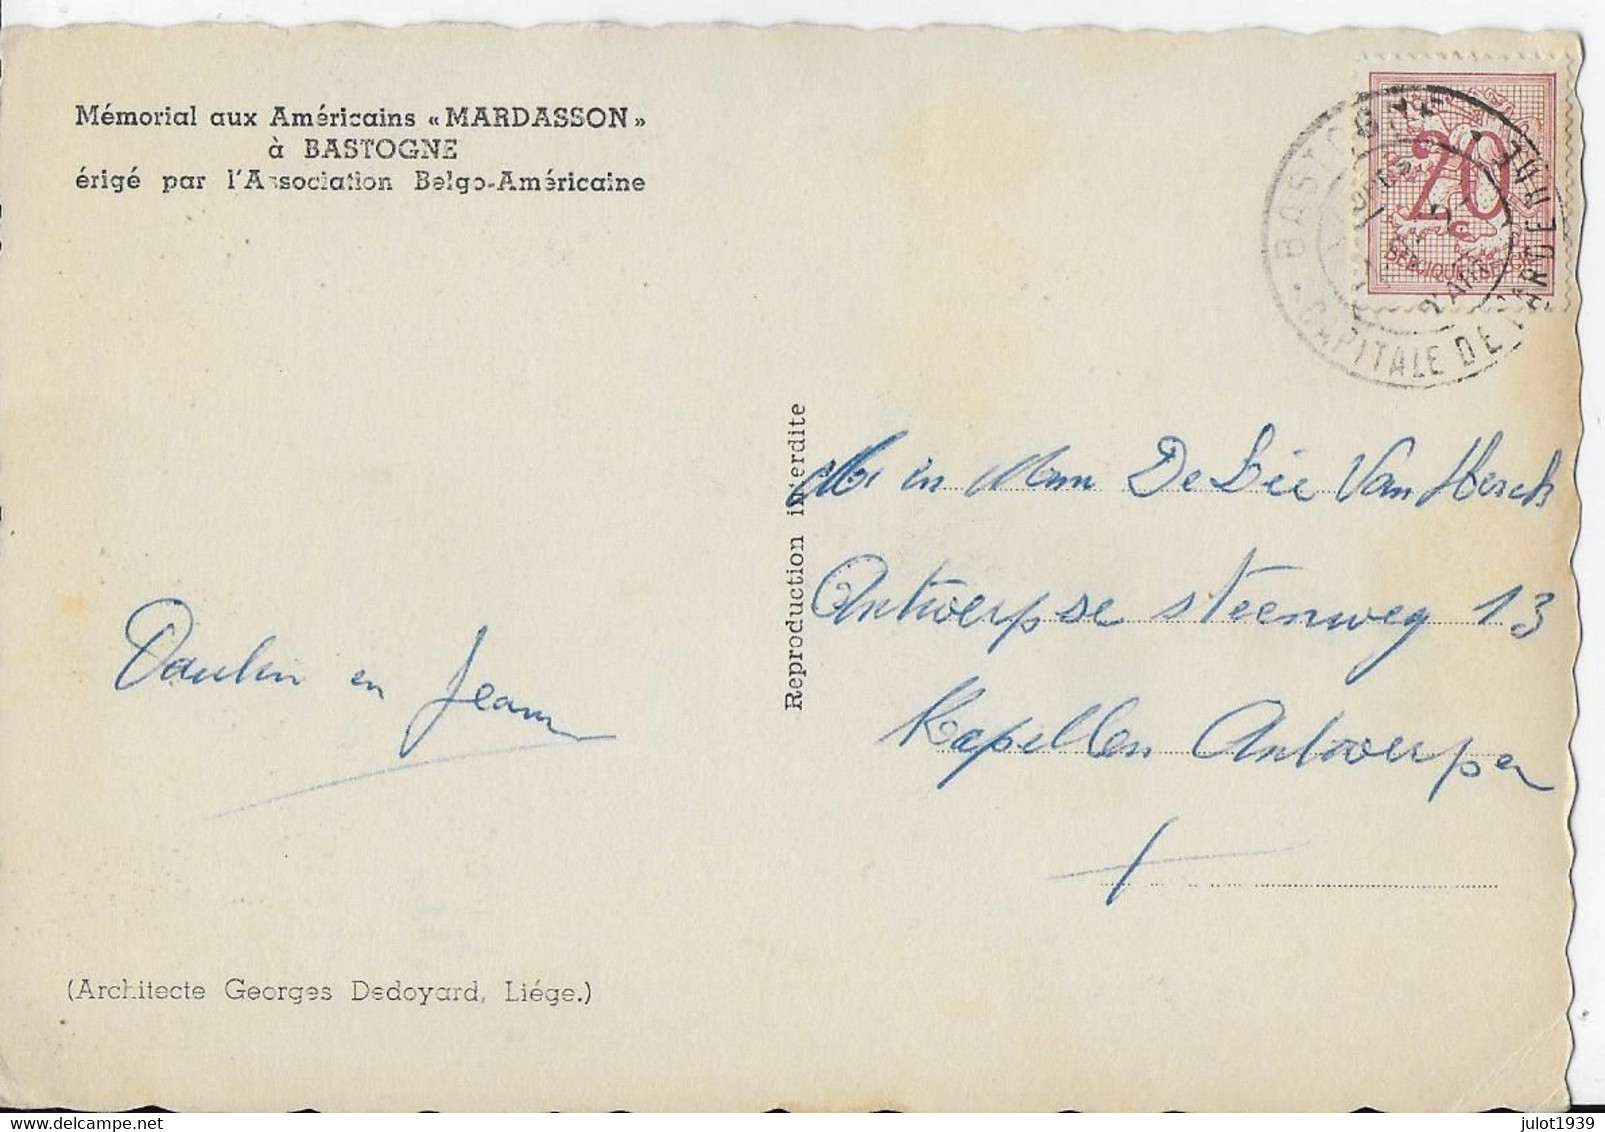 Mémorial aux Américains « MARDASSON »
à BASTOGNE
érigé par l'Association Belgo-Américaine
20
c
BELGIQUE BELGIE
BASTOGNE
CAPITALE DE L'ARDENNE
Reproduction interdite
Mr en Mme De Bie Van Hersch
Antwerpse steenweg 13
Kapellen Antwerpen
Paulin en Jeanne
(Architecte Georges Dedoyard, Liége.)
delcampe.net
julot1939